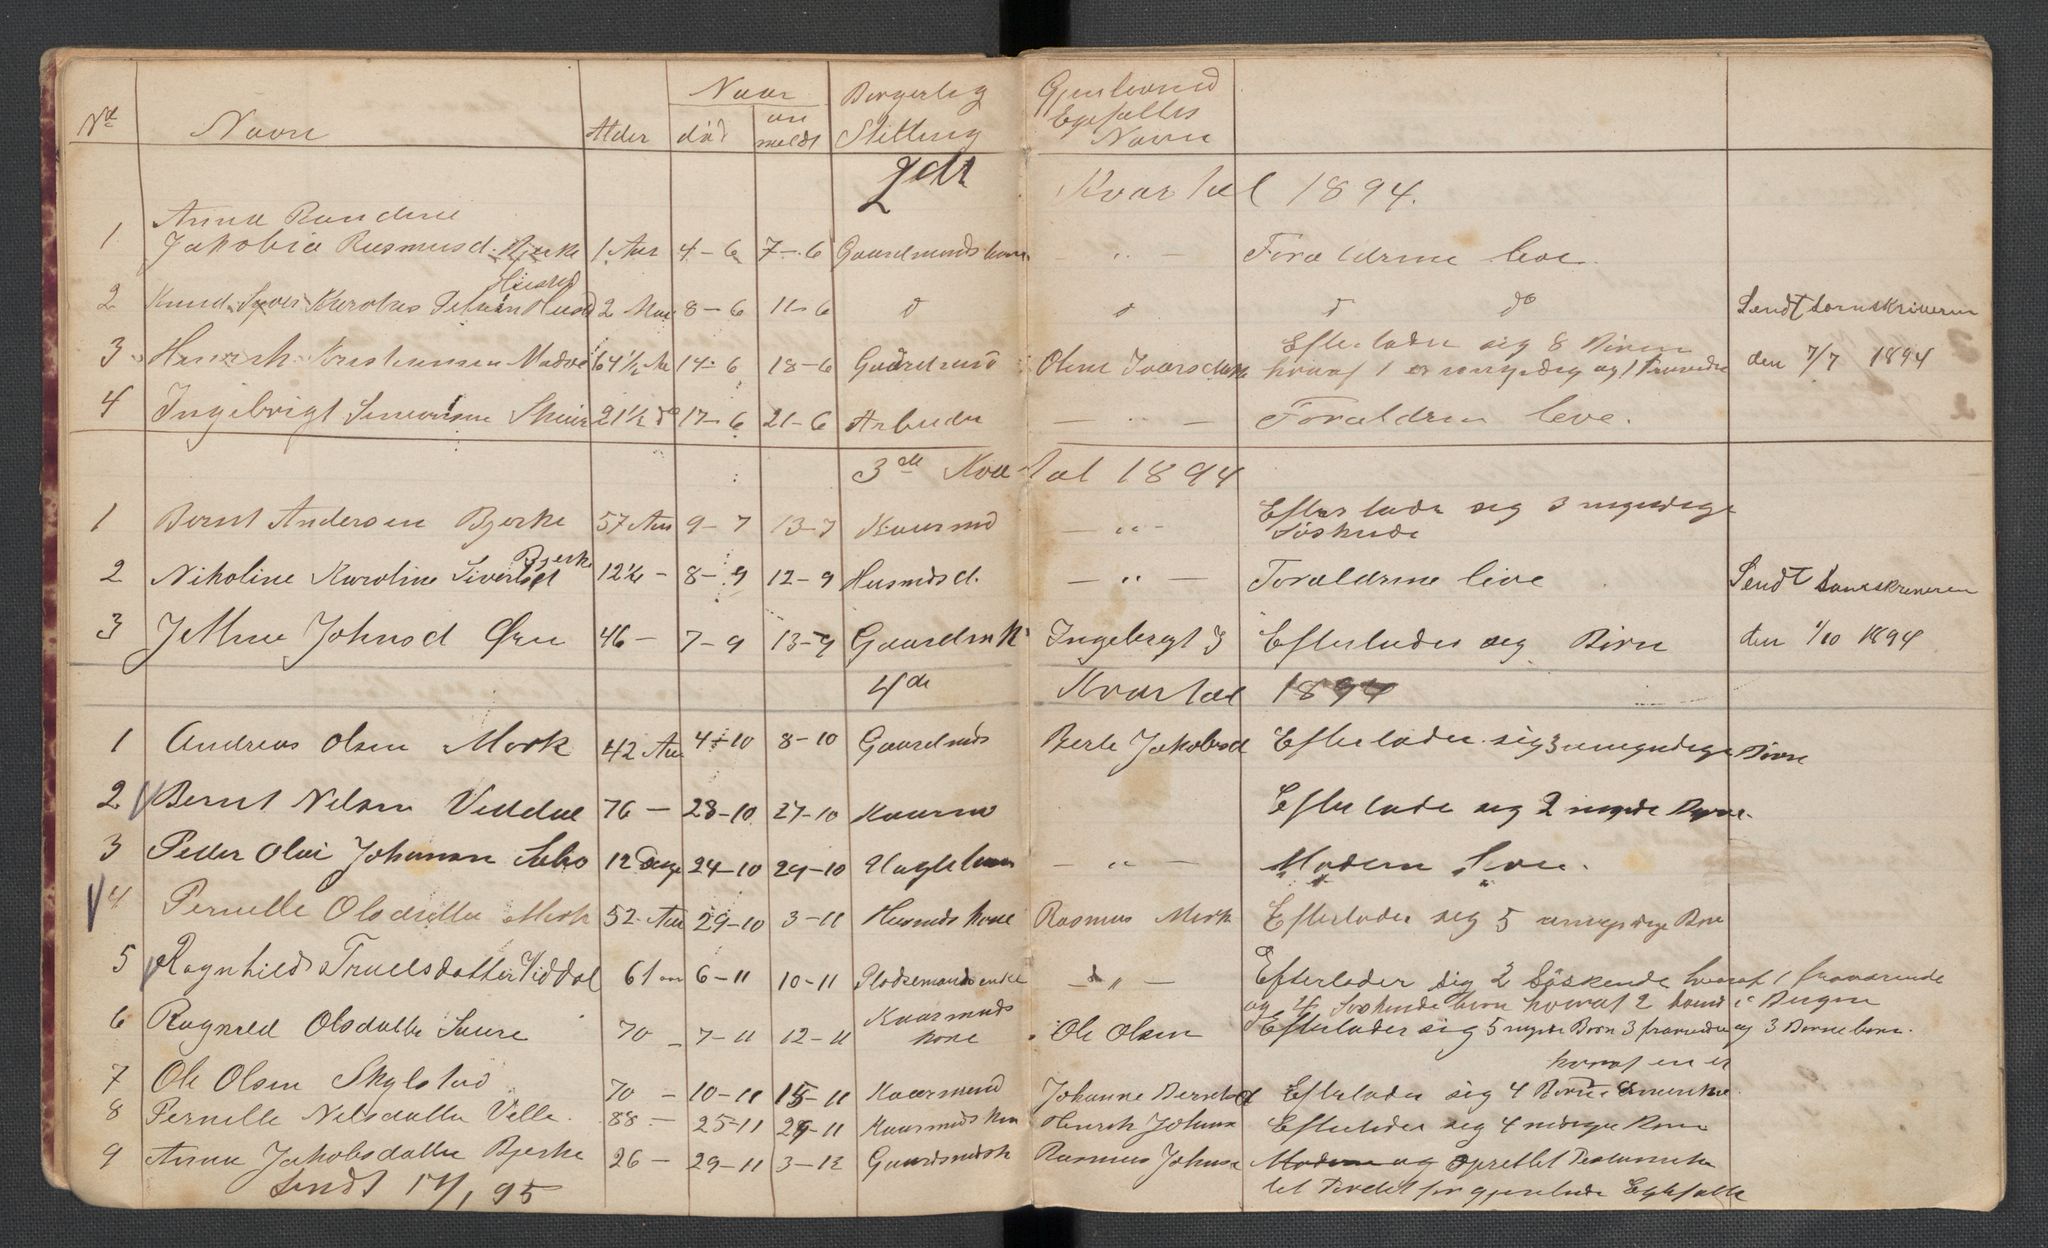 No Navn Alder Naar Borgerlig Gjenlevend
død an Stilling Egtefelles
meldt Navn
2det Kvartal 1894.
Anna Randine
1 Jakobia Rasmusd. Bjerke 1 Aar 4-6 7-6 Gaardmands barn — " — Forældrene leve
Husted
2 Knud 2 8-6 11-6 d d d do Sendt Sorenskriveren
3 Henrik Kristiansen 64 1/2 Aar 14-6 18-6 Gaardmand Oline Efterlader sig 8 Børn
hvoraf 1 er umyndig og 1 fraværende den 7/7 1894
4 Ingebrigt 21 1/2 do 17-6 21-6 Arbeider — " — Forældrene leve.
3de Kvartal 1894
1 Bernt Andersen Bjerke 57 Aar 9-7 13-7 Kaarmd — " — Efterlader sig 3 myndige
Søskende
Bjerke
2 Nikoline Karoline Sivertsd 12 1/2 — 8-9 12-9 Husmdsd. — " — Forældrene leve Sendt Sorenskriveren
3 Johnsd Øen 46 — 7-9 13-9 Gaardmk Ingebrigt J Efterlader sig Børn den 1/10 1894
4de Kvartal 1894
1 Andreas Olsen Mork 42 Aar 4-10 8-10 Gaardmds Berte Jakobsd Efterlader sig 3 umyndige Børn
2 Bernt Nilsen Viddal 76 — 23-10 27-10 Kaarmd Efterlader sig 2 mynde Børn.
3 Peder Olai Johannsen Sæbø 12 Dage 24-10 29-10 — " — Moderen lever.
4 Pernille Olsdatter Mork 52 Aar 29-10 3-11 Husmds kone Rasmus Mork Efterlader sig 5 umyndige Børn
5 Ragnhild Truelsdatter Viddal 61 aar 6-11 10-11 Pladsemands enke — " — Efterlader sig 2 Søskende hvoraf 1 fraværende
og 4 Søskendebørn hvoraf 2 i Bergen
6 Ragnild Olsdatter Saure 70 — 7-11 12-11 Kaarmands
kone Ole Olsen Efterlader sig 5 mynde Børn 3 fraværden og 3 Børnebørn.
hvoraf en er
7 Ole Olsen Skylstad 70 — 10-11 15-11 Kaarmand Johanne Berntsd Efterlader sig 4 Børn i Amerika
8 Pernille Nilsdatter Velle. 88 — 25-11 29-11 Kaarmands kone Henrik Johns Efterlader sig 4 myndige Børn
9 Anna Jakobsdatter Bjerke 26 — 29-11 3-12 Gaardsmdsk Rasmus Johns Moderen og oprettet Testamente
til Fordel for gjenlevende Egtefælle
Sendt 17/1 95